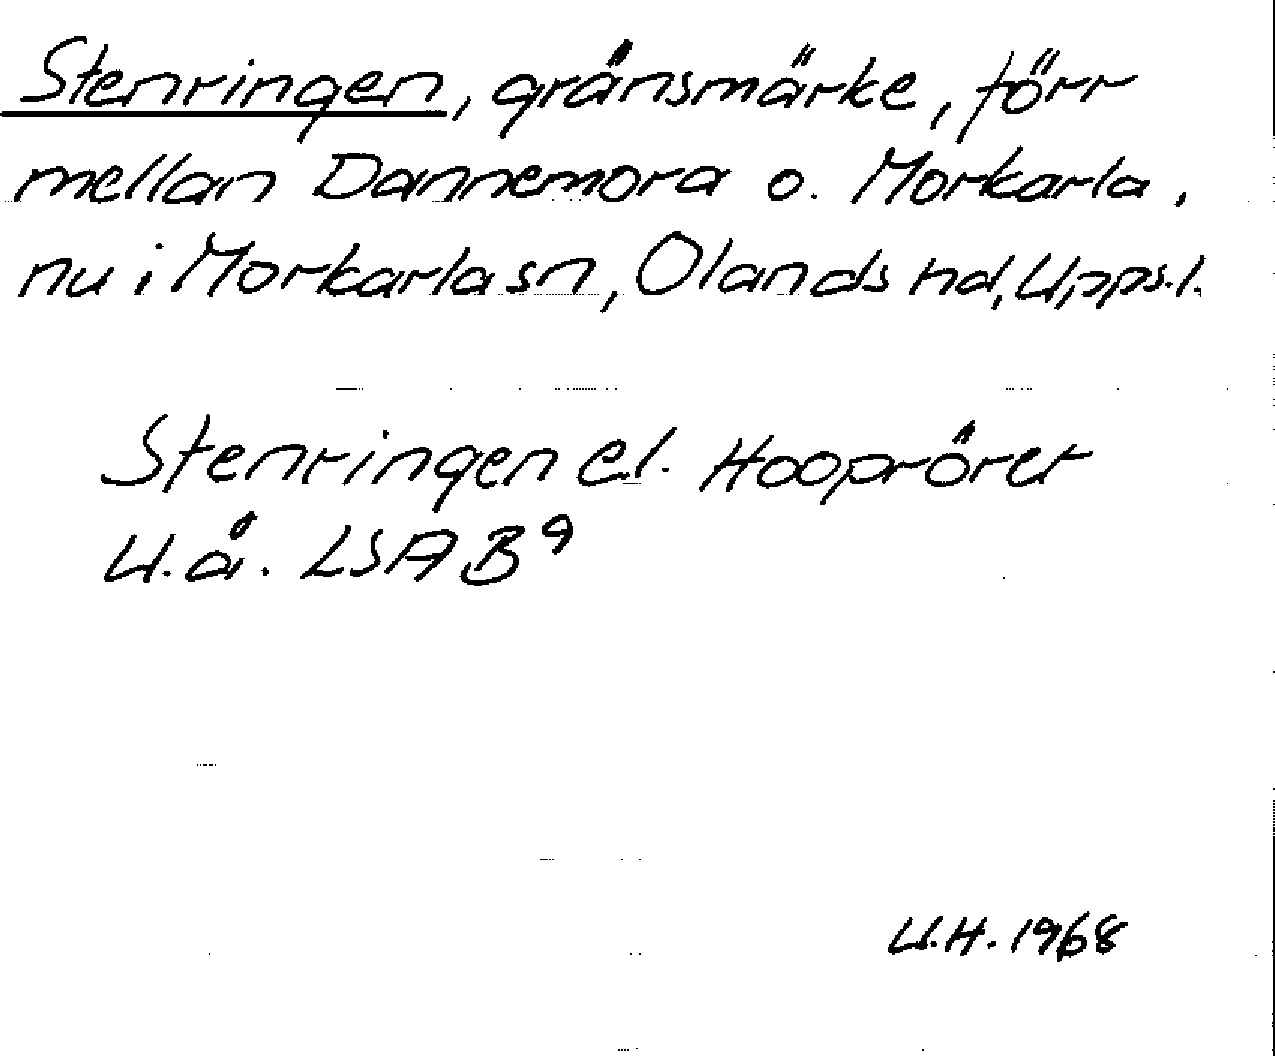 Stenringen, gränsmärke, förr
mellan Dannemora o. Morkarla,
nu i Morkarla sn, Olands hd, Upps.l.
Stenringen el. Hoopröret
U.å. LSA B⁹
U.H. 1968